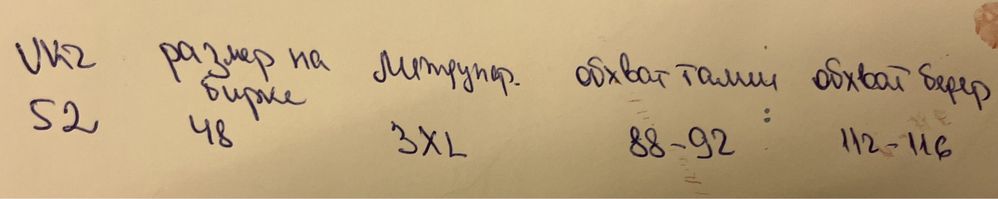 размер на бирке Междунар. обхват талии обхват бедер
52 48 3XL 88-92 112-116